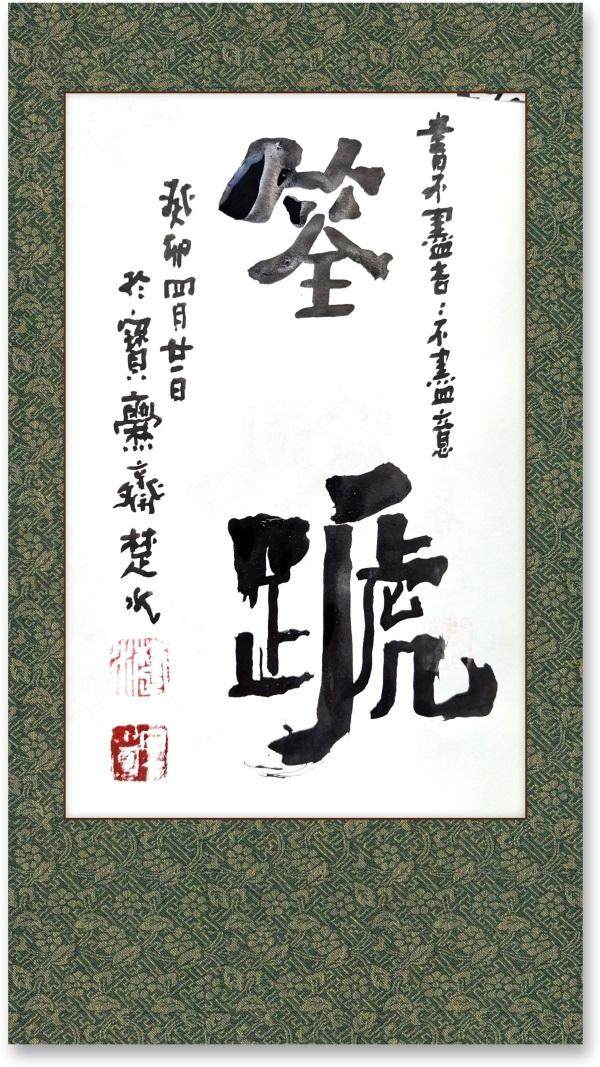 書不盡言：不盡意
筌蹏
癸卯四月廿一日
於寶爨齋楚水